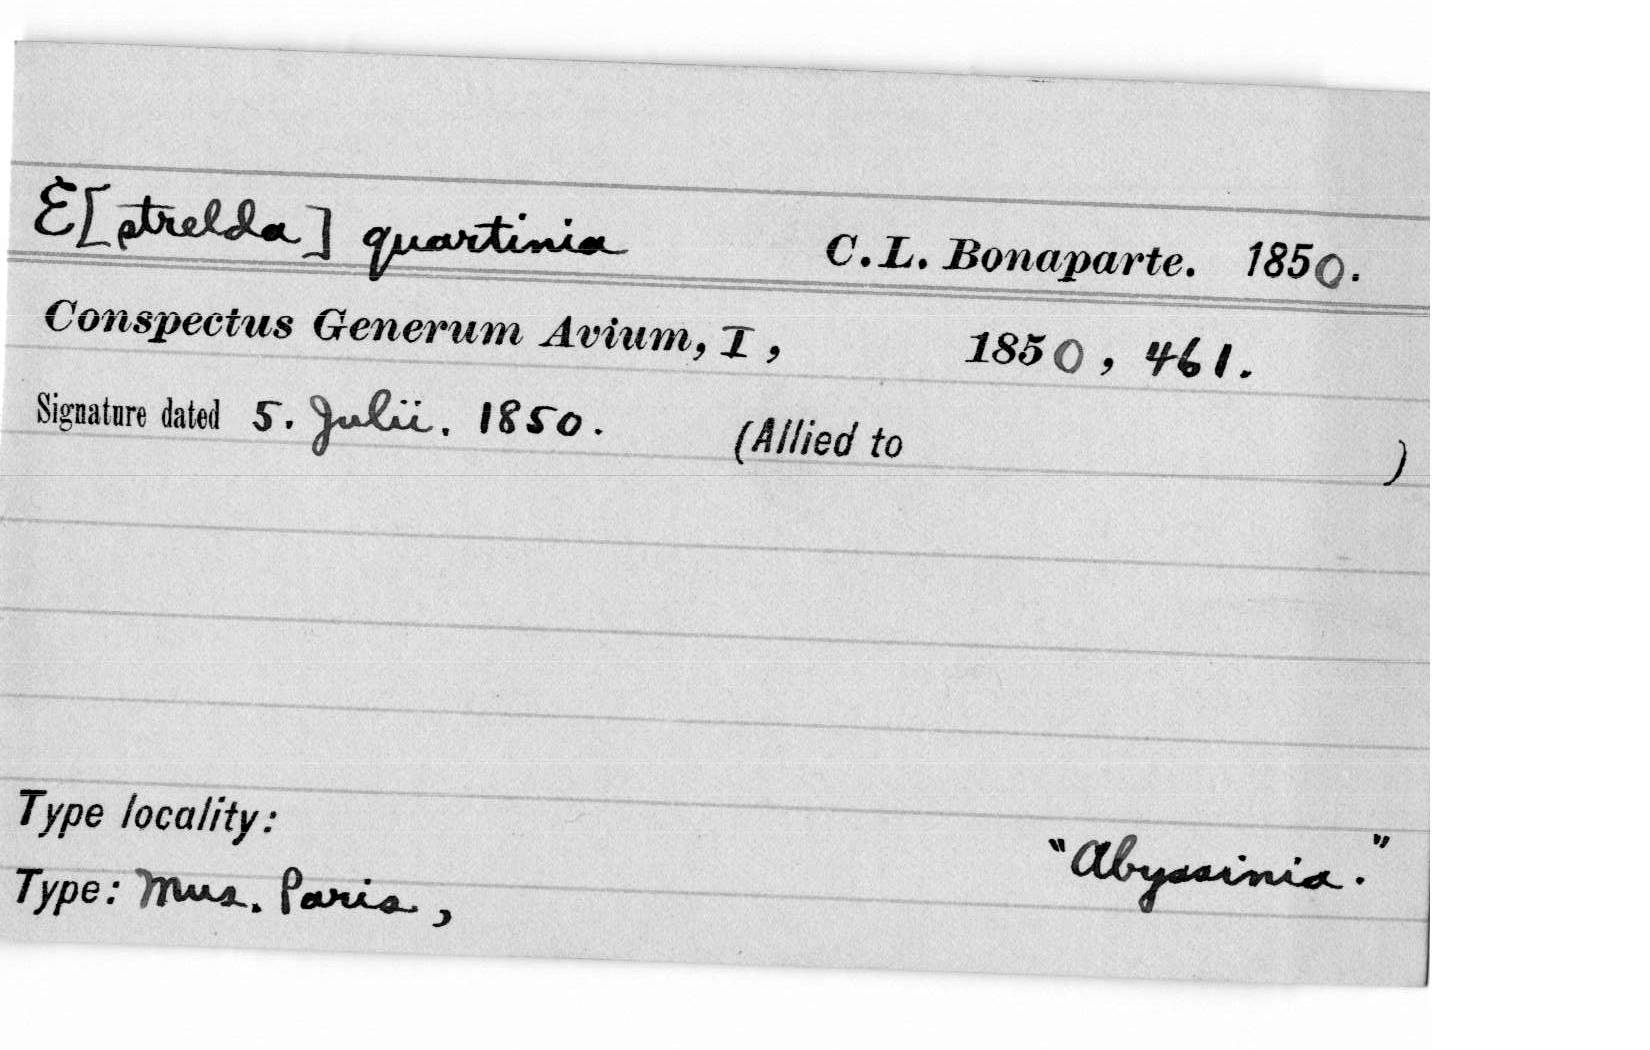 E[strelda] quartinia C.L. Bonaparte. 1850.
Conspectus Generum Avium, I, 1850, 461.
Signature dated 5. Julii. 1850. (Allied to )
Type locality:
"Abyssinia."
Type: Mus. Paris,